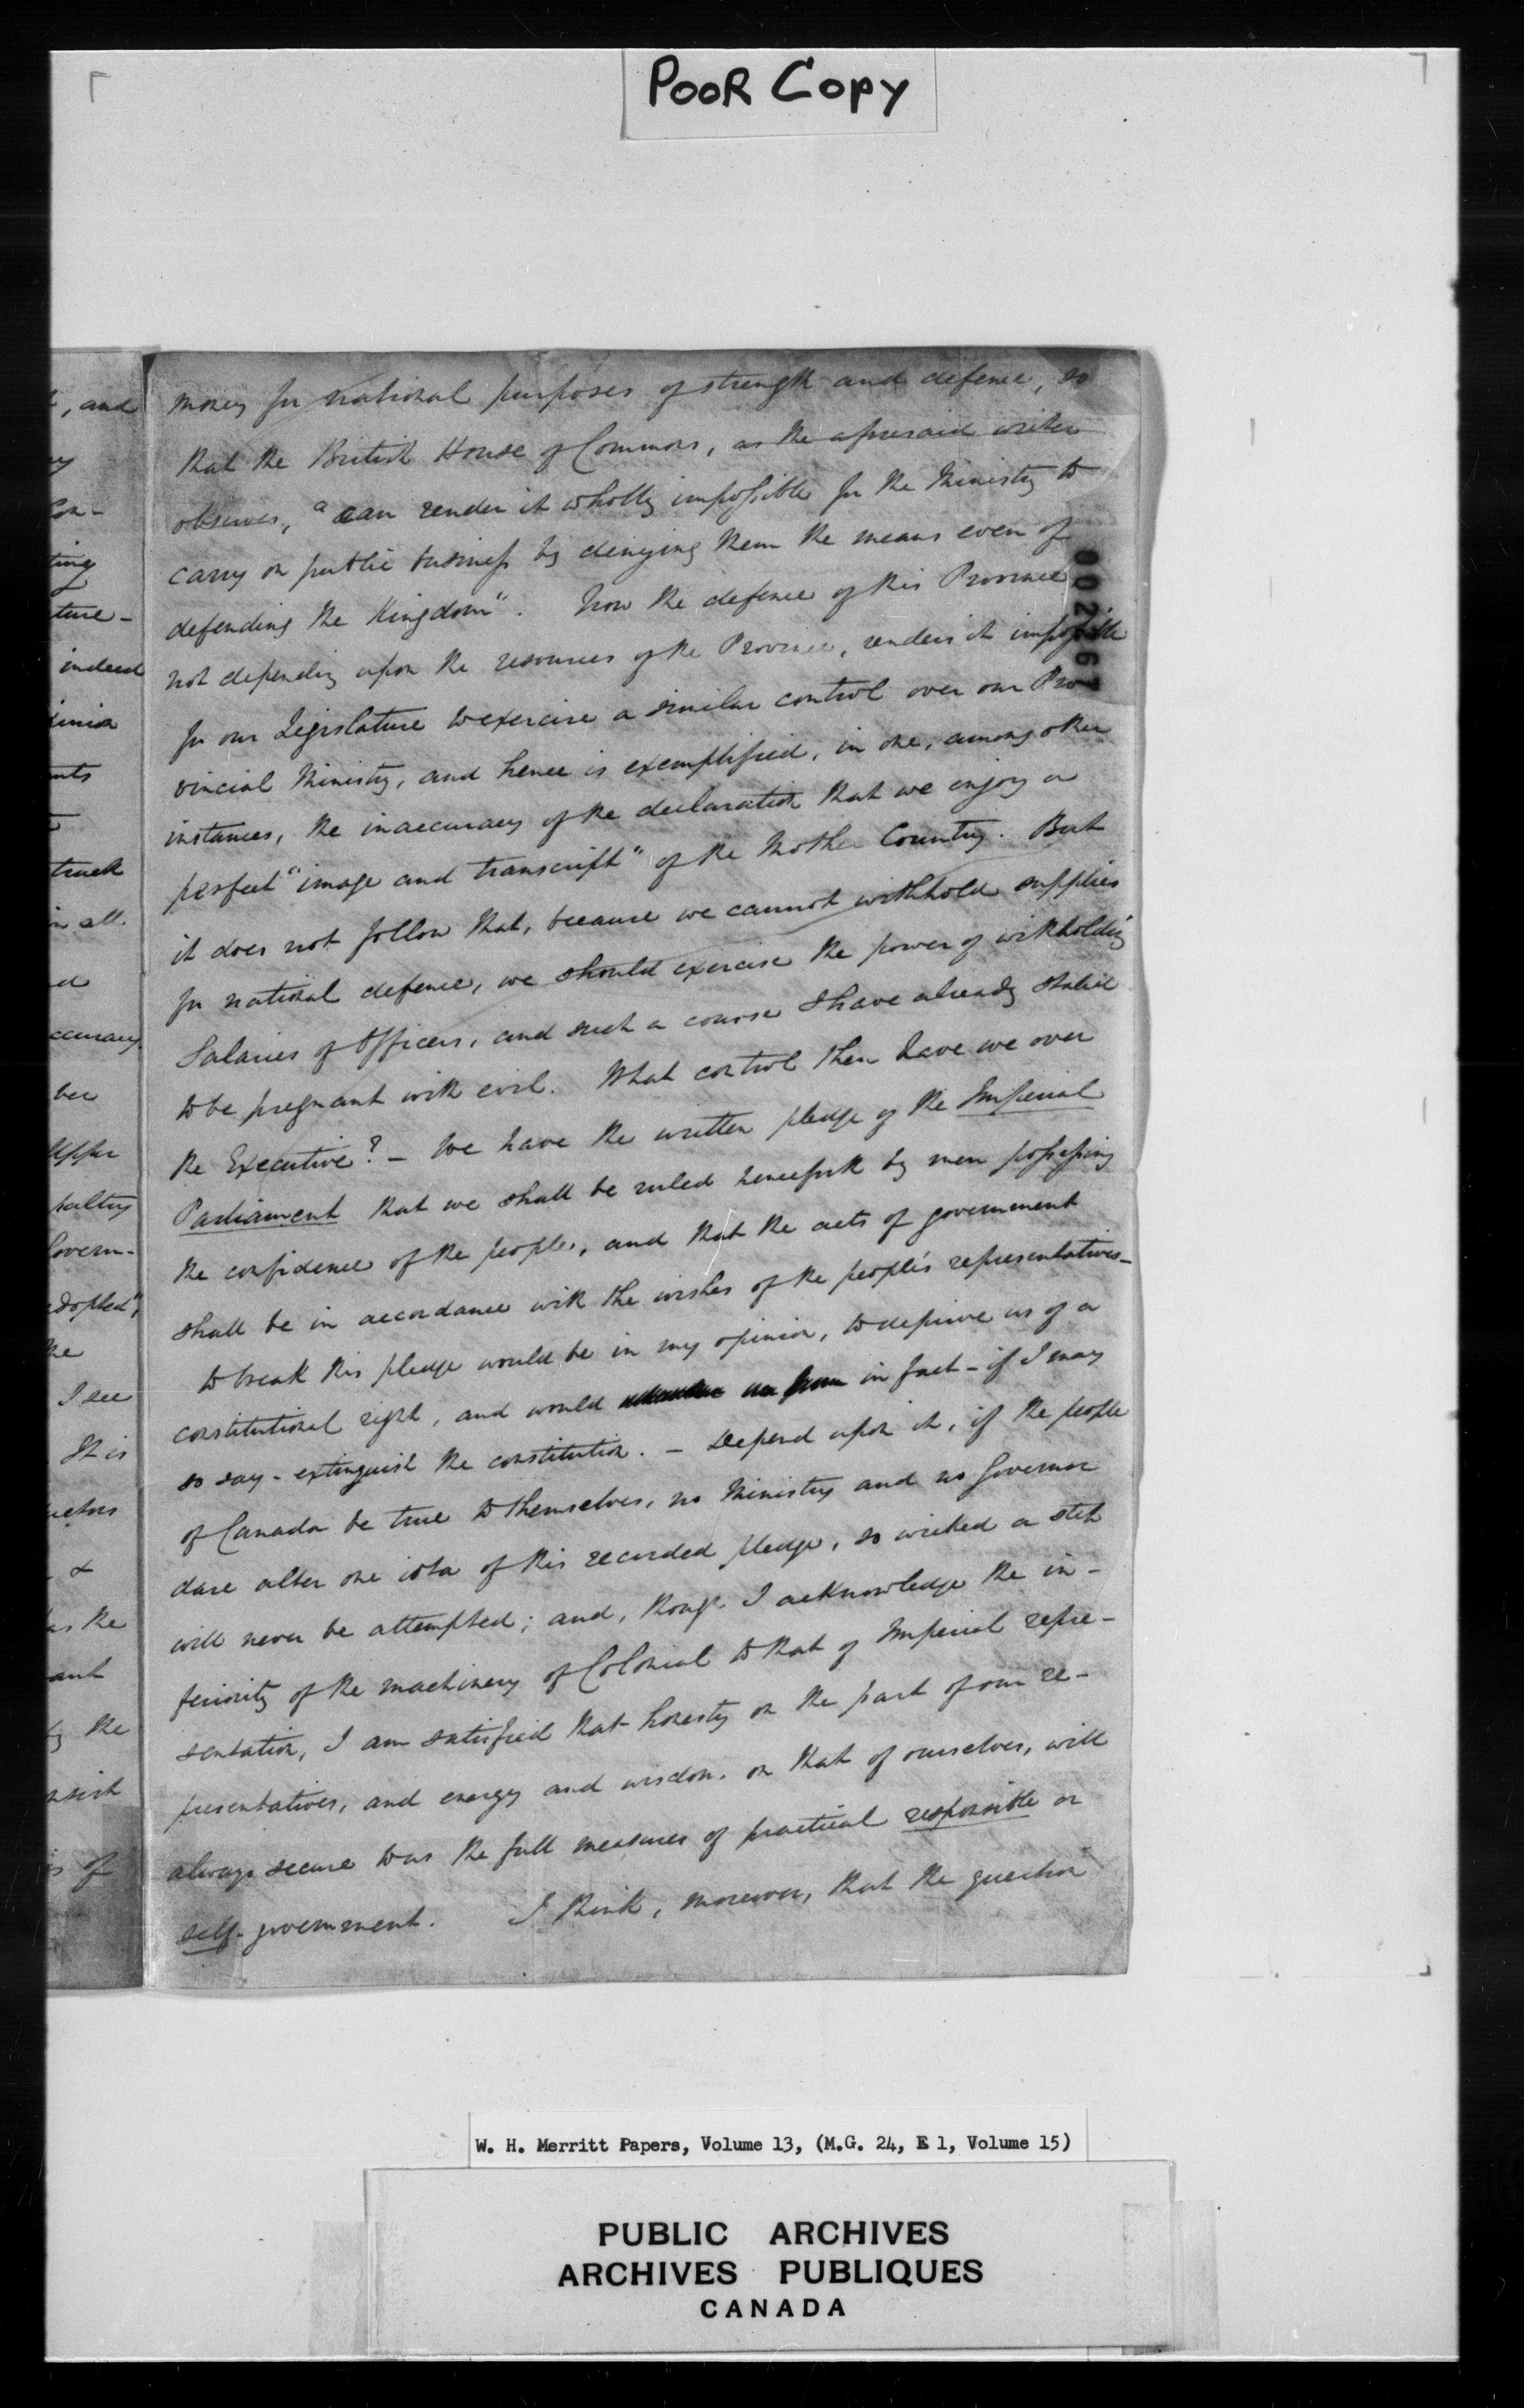 POOR COPY
money for national purposes of strength and defence, so
that the British House of Commons, as the aforesaid writer
observes, "can render it wholly impossible for the Ministry to
carry on public business by denying them the means even of
defending the Kingdom". Now the defence of this Province
not depending upon the resources of the Province, renders it impossible
for our Legislature to exercise a similar control over our Pro-
vincial Ministry, and hence is exemplified, in one, among other
instances, the inaccuracy of the declaration that we enjoy a
perfect "image and transcript" of the Mother Country. But
it does not follow that, because we cannot withhold supplies
for national defence, we should exercise the power of withholding
Salaries of Officers, and such a course I have already stated
to be pregnant with evil. What control then have we over
the Executive? - We have the written pledge of the Imperial
Parliament that we shall be ruled henceforth by men possessing
the confidence of the people, and that the acts of government
shall be in accordance with the wishes of the people's representatives-
to break this pledge would be in my opinion, to deprive us of a
constitutional right, and would in fact - if I may
so say - extinguish the constitution. - Depend upon it, if the people
of Canada be true to themselves, no Ministry and no Governor
dare alter one iota of this recorded pledge, so wicked a step
will never be attempted; and, though I acknowledge the in-
feriority of the machinery of Colonial to that of Imperial repre-
sentation, I am satisfied that honesty on the part of our re-
presentatives, and energy and wisdom on that of ourselves, will
always secure to us the full measures of practical responsible or
self-government. I think, moreover, that the question
, and
Con-
ting
ture-
indeed
inion
nts
truck
in all.
d
ccuracy.
ber
Upper
paltry
Govern-
adopted",
he
I see
It is
uctors
&
as the
ant
by the
nsist
is of
W. H. Merritt Papers, Volume 13, (M.G. 24, E 1, Volume 15)
PUBLIC ARCHIVES
ARCHIVES PUBLIQUES
CANADA